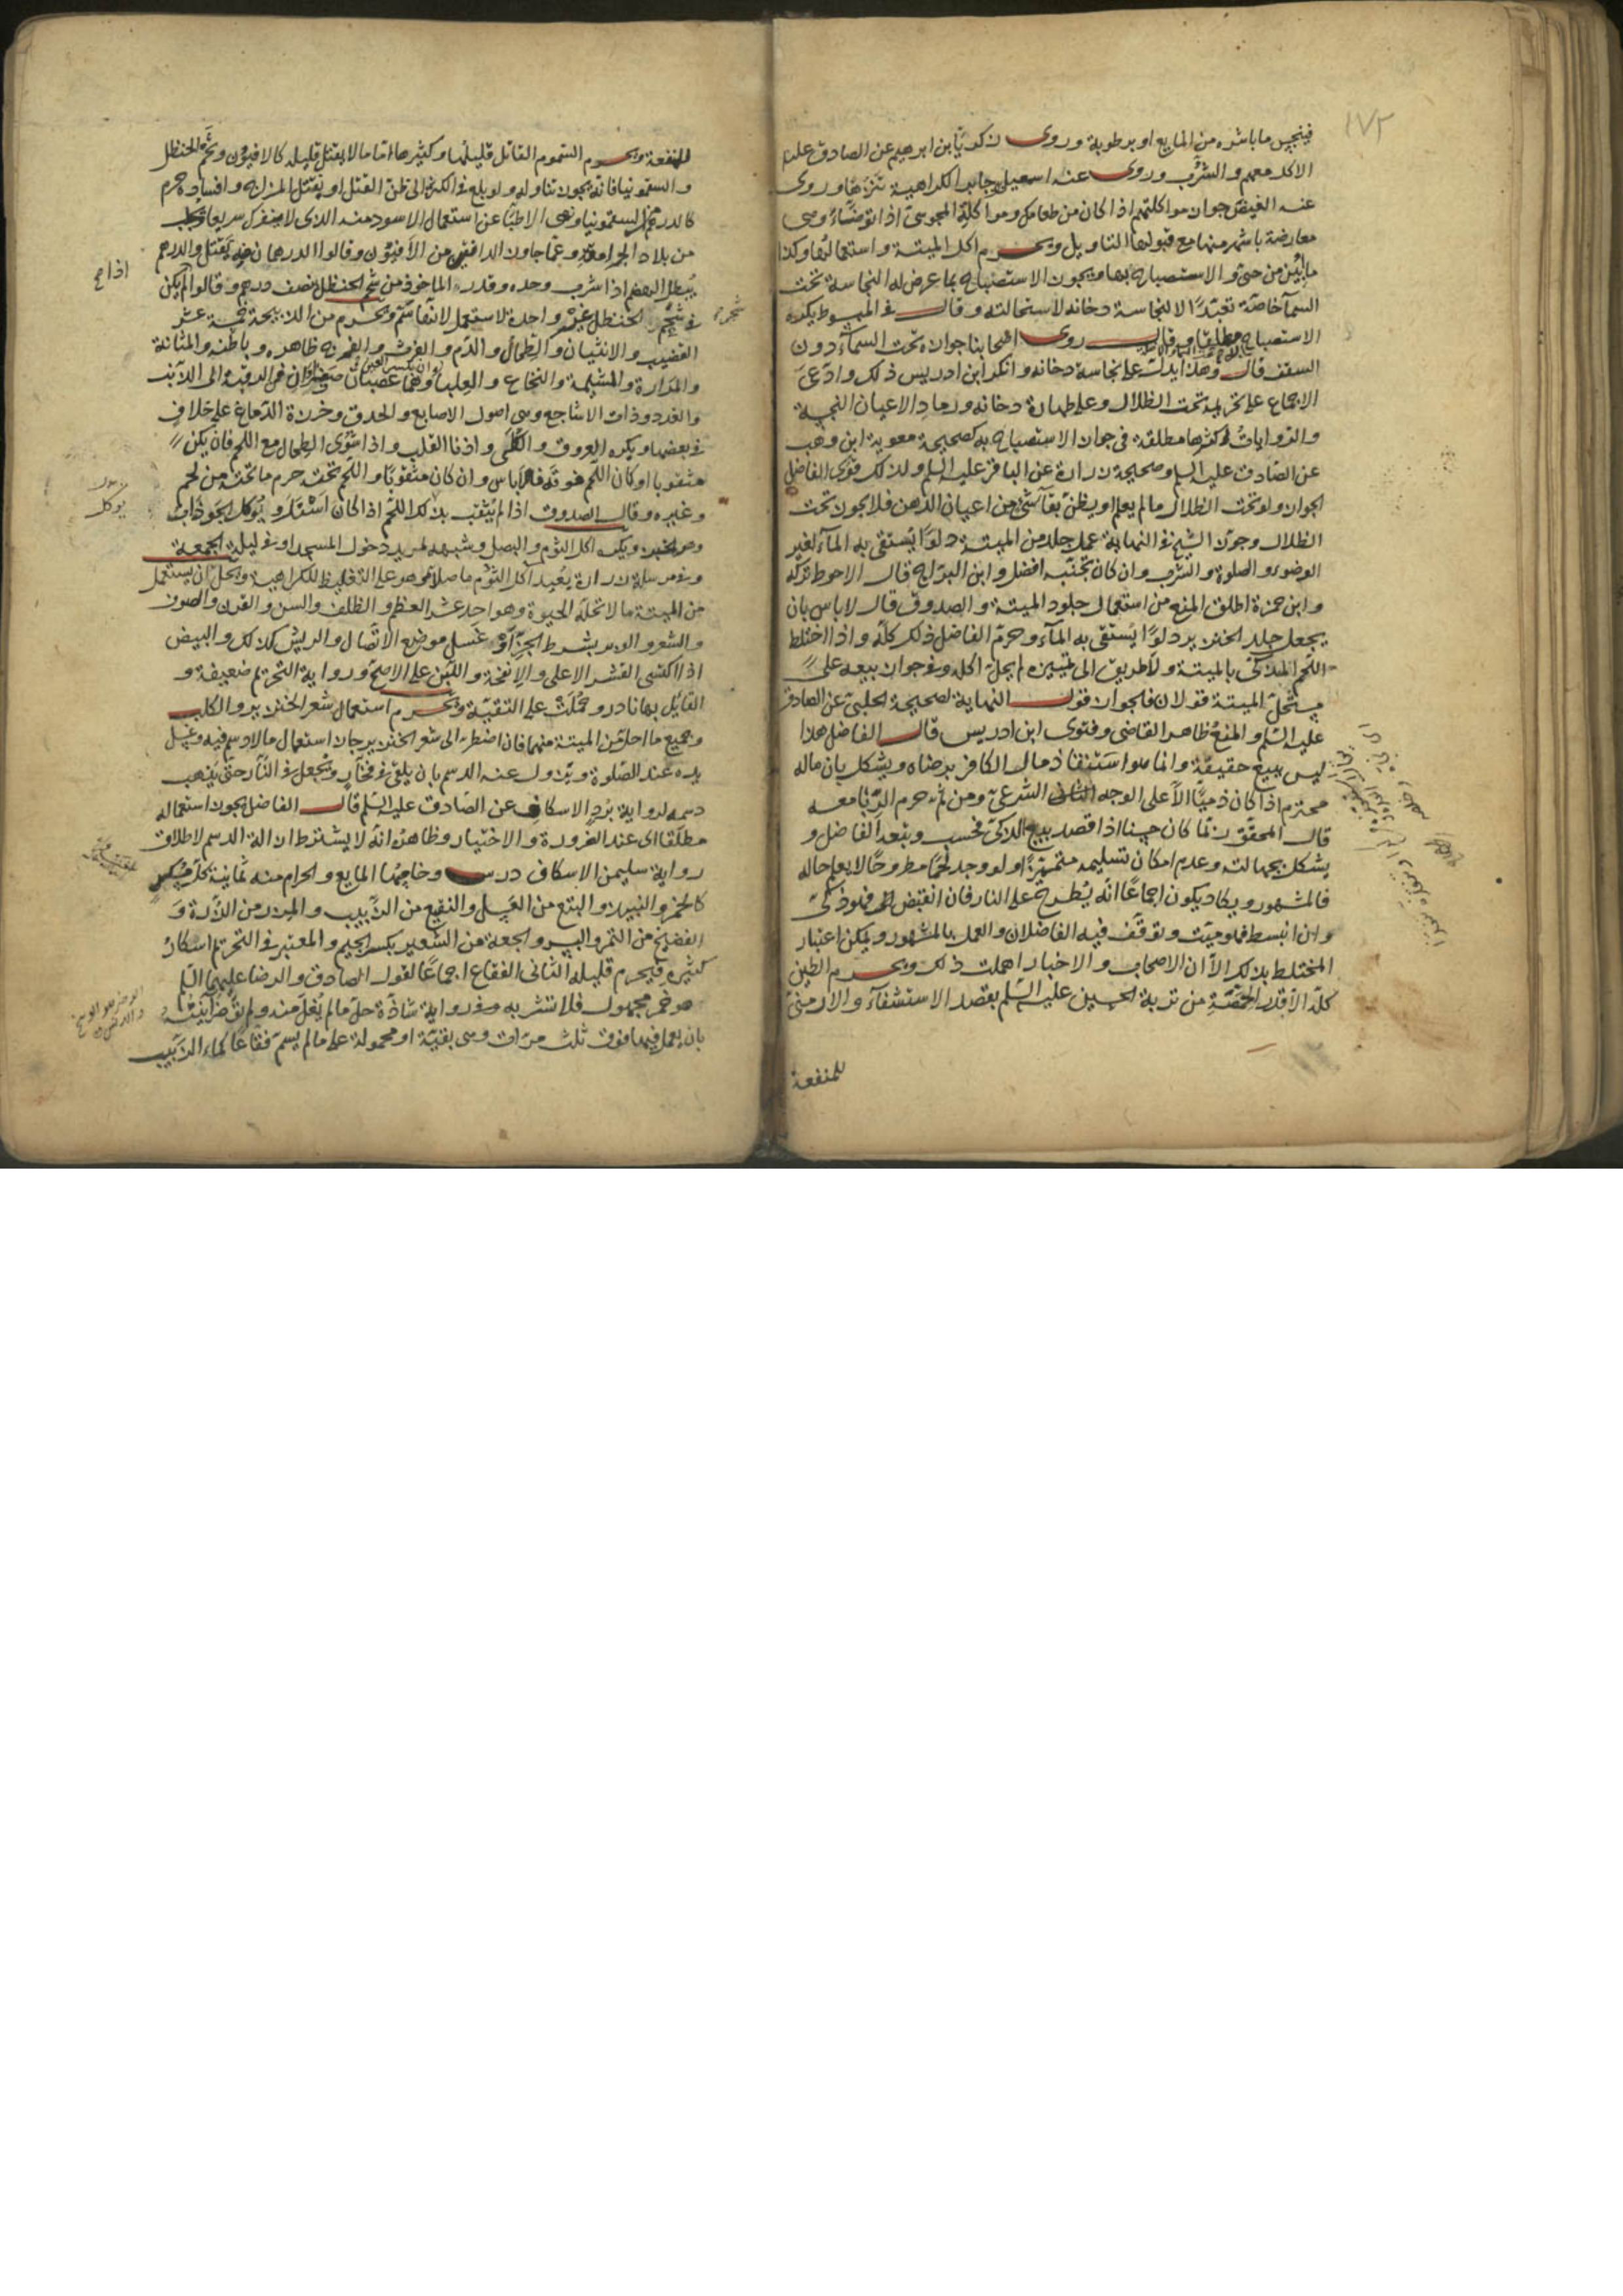 ١٧٢
فينجس ما باشره من المايع او برطوبة وروى زكريا بن ابرهيم عن الصادق عليه
الاكل معهم والشرب وروى عنه اسمعيل بن جابر الكراهية تنزها وروى
عنه العيص جواز مواكلتهم اذا كان من طعامك ومواكلة المجوسي اذا توضأ وهي
معارضة باشهر منها مع قبولها التاويل ويحرم اكل الميتة واستعمالها وكذا
ما ابين من حي والاستصباح بها ويجوز الاستصباح بما عرض له النجاسة تحت
السمآ خاصة تعبدًا لا لنجاسة دخانه لاستحالته وقال في المبسوط يكره
الاستصباح به مطلقا وقال روى اصحابنا جوازه تحت السمآء دون
السقف قال وهذا يدل على نجاسة دخانه وانكر ابن ادريس ذلك وادعى
الاجماع على تحريمه تحت الظلال وعلى طهارة دخانه ورماد الاعيان النجسة
والروايات اكثرها مطلقة في جواز الاستصباح به كصحيحة معوية ابن وهب
عن الصادق عليه السلم وصحيحة زرارة عن الباقر عليه السلم ولذلك قوى الفاضل
الجواز ولو تحت الظلال ما لم يعلم او يظن بقآ شئ من اعيان الدهن فلا يجوز تحت
الظلال وجوز الشيخ في النهاية عمل جلد من الميتة دلوًا يستقى به المآء لغير
الوضوء والصلوة والشرب وان كان تجنبه افضل وابن البراج قال الاحوط تركه
وابن حمزة اطلق المنع من استعمال جلود الميتة والصدوق قال لا باس بان
يجعل جلد الخنزير دلوًا يستقى به المآء وحرم الفاضل ذلك كله واذا اختلط
اللحم المذكى بالميتة ولا طريق الى تمييزه لم يحل اكله وفي جواز بيعه على
مستحل الميتة قولان فالجواز قول النهاية لصحيحة الحلبي عن الصادق
عليه السلم والمنع ظاهر القاضي وفتوى ابن ادريس قال الفاضل هذا
ليس ببيع حقيقة وانما هو استنقاذ مال الكافر برضاه ويشكل بان ماله
محترم اذا كان ذميا الا على الوجه الشرعي ومن ثم حرم الربا معه
قال المحقق ربما كان حسنا اذا قصد بيع الذكي فحسب وتبعه الفاضل و
يشكل بجهالته وعدم امكان تسليمه متميزًا ولو وجد لحمًا مطروحًا لا يعلم حاله
فالمشهور ويكاد يكون اجماعًا انه يطرح على النار فان انقبض فهو ذكي
وان انبسط فهو ميت وتوقف فيه الفاضلان والعمل بالمشهور ويمكن اعتبار
المختلط بذلك الا ان الاصحاب والاخبار اهملت ذلك ويحرم الطين
كله الا قدر الحمصة من تربة الحسين عليه السلم بقصد الاستشفآء والارمني
للمنفعة
للمنفعة ويحرم السموم القاتل قليلها وكثيرها اما ما لا يقتل قليله كالافيون وشحم الحنظل
والسقمونيا فانه يجوز تناوله ولو بلغ في الكثرة الى ظن القتل او يثقل المزاج وافساده حرم
كالدرهم من السقمونيا ونهى الاطبا عن استعمال الاسود منه الذي لا ينفرك سريعا
من بلاد الجرامقة وعما جاوز الدانقين من الافيون وقالوا الدرهمان منه يقتل والدرهم
يبطل الهضم اذا شرب وحده وقدروا الماخوذ من شحم الحنظل بنصف درهم وقالوا لم يكن
في شجرة الحنظل غير واحدة لا تستعمل لانها سم ويحرم من الذبيحة خمسة عشر
القضيب والانثيان والطحال والدم والفرث والفرج ظاهره وباطنه والمثانة
والمرارة والمشيمة والنخاع والعلباء وهما عصبتان صفراوان في الرقبة الى الذنب
والغدد وذات الاشاجع وهي اصول الاصابع والحدق وخرزة الدماغ على خلاف
في بعضها ويكره العروق والكلى واذنا القلب واذا شوى الطحال مع اللحم فان يكن
مثقوبا او كان اللحم فوقه فلا باس وان كان مثقوبا واللحم تحته حرم ما تحته من لحم
وغيره وقال الصدوق اذا لم يثقب يؤكل اللحم اذا كان اسفل ويؤكل الجوذاب
وهو الخبز ويكره اكل الثوم والبصل وشبهه لمريد دخول المسجد او في ليلة الجمعة
وفي مرسلة زرارة يعيد آكل الثوم ما صلاه وهو على التغليظ للكراهية ويحل ان يستعمل
من الميتة ما لا تحله الحيوة وهو احد عشر العظم والظلف والسن والقرن والصوف
والشعر والوبر بشرط الجز او غسل موضع الاتصال والريش كذلك والبيض
اذا اكتسى القشر الاعلى والانفحة واللبن على الاصح ورواية التحريم ضعيفة و
القايل بها نادر وحملت على التقية ويحرم استعمال شعر الخنزير والكلب
وجميع ما احل من الميتة منهما فان اضطر الى شعر الخنزير جاز استعمال ما لا دسم فيه وغسل
يده عند الصلوة ويزول عنه الدسم بان يلقى في فخار ويجعل في النار حتى يذهب
دسمه لرواية برد الاسكاف عن الصادق عليه السلم قال الفاضل يجوز استعماله
مطلقا اى عند الضرورة والاختيار وظاهره انه لا يشترط ازالة الدسم لاطلاق
رواية سليمن الاسكاف درس وخامسها المايع والحرام منه ثمانية كل مسكر
كالخمر والنبيذ والبتع من العسل والنقيع من الزبيب والمزر من الذرة و
الفضيخ من التمر والبسر والجعة من الشعير بكسر الجيم والمعتبر في التحريم اسكار
كثيره فيحرم قليله الثاني الفقاع اجماعًا لقول الصادق والرضا عليهما السلم
هو خمر مجهول فلا تشربه وفي رواية شاذة حل ما لم يغل منه ولم تضر آنيته
بان يعمل فيها فوق ثلث مرات وهي بتقية او محمولة على ما لم يسم فقاعا كماء الزبيب